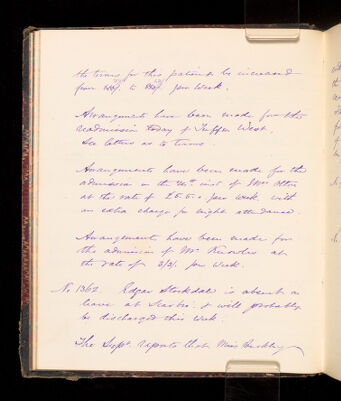 the terms for this patient be increased
from to per week.
Arrangements have been made for the
readmission today of Tuffen West.
See letters as to terms.
Arrangements have been made for the
admission on the inst of Mrs
at the rate of £5.5.0 per week with
an extra charge for night attendance.
Arrangements have been made for
the admission of Mr Knowles at
the rate of 3/3/- per week.
No. 1362. Edgar Stockdale is absent on
leave at & will probably
be discharged this week.
The Supt. reports that Miss